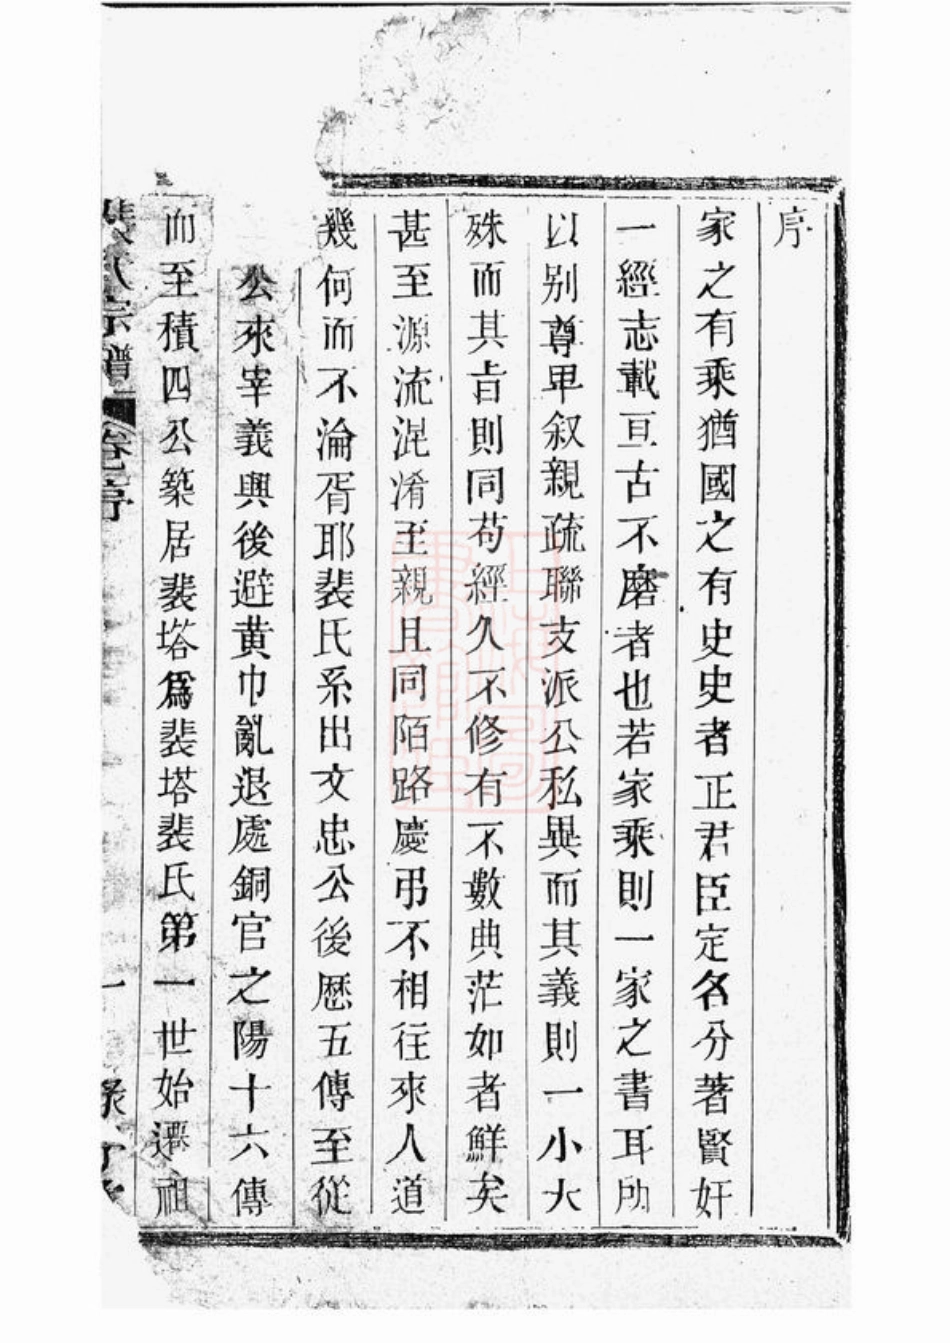 序
家之有乘猶國之有史史者正君臣定名分著賢奸
一經志載亘古不磨者也若家乘則一家之書耳所
以别尊卑叙親疏聯支派公私異而其義則一小大
殊而其旨則同苟經久不修有不數典茫如者鮮矣
甚至源流混淆至親且同陌路慶弔不相往來人道
幾何而不淪胥耶裴氏系出文忠公後歷五傳至從
公來宰義興後避黃巾亂退處銅官之陽十六傳
而至積四公築居裴塔爲裴塔裴氏第一世始遷祖
裴氏宗譜 卷序 一